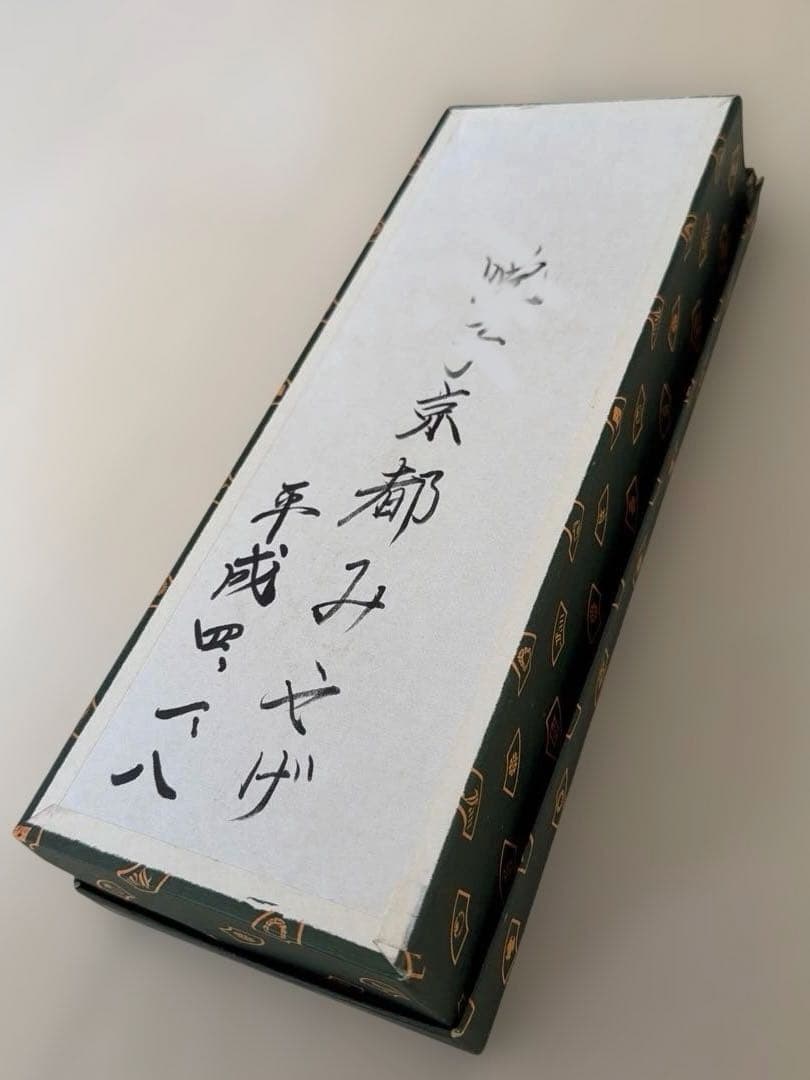 京都みやげ
平成四、一、八